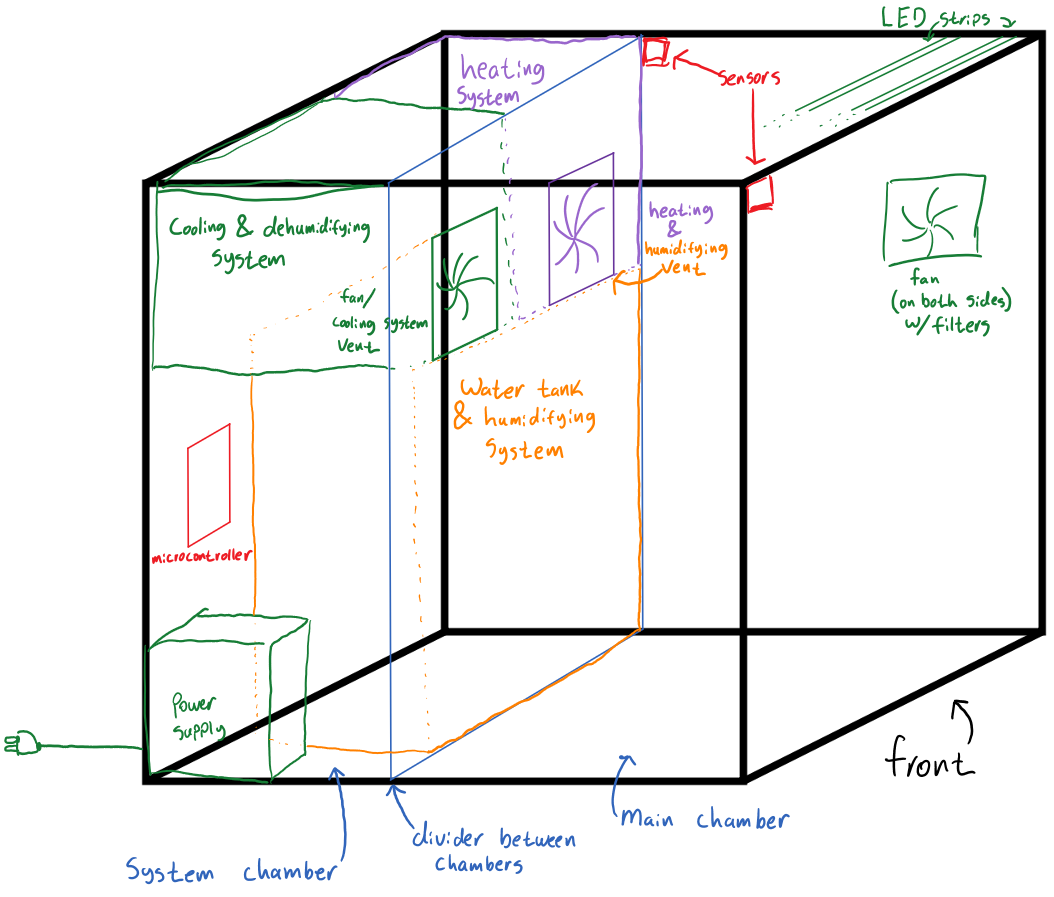 LED strips
heating
System
Sensors
Cooling & dehumidifying
System
heating
&
humidifying
Vent
fan/
Cooling system
Vent
fan
(on both sides)
w/filters
Water tank
& humidifying
System
microcontroller
Power
Supply
front
Main chamber
divider between
chambers
System chamber